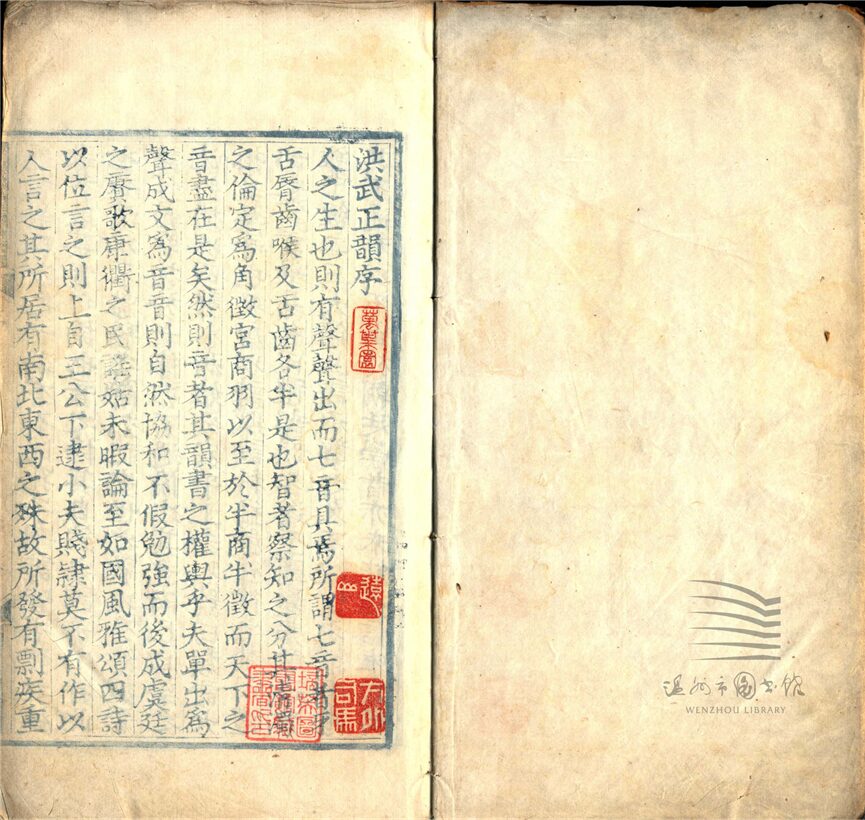 洪武正韻序
人之生也則有聲聲出而七音具焉所謂七音者牙
舌脣齒喉及舌齒各半是也智者察知之分其清濁
之倫定為角徵宮商羽以至於半商半徵而天下之
音盡在是矣然則音者其韻書之權輿乎夫單出為
聲成文為音音則自然協和不假勉強而後成虞廷
之賡歌康衢之民謠姑未暇論至如國風雅頌四詩
以位言之則上自王公下逮小夫賤隸莫不有作以
人言之其所居有南北東西之殊故所發有剽疾重
遠
司馬
温州市圖書館
WENZHOU LIBRARY